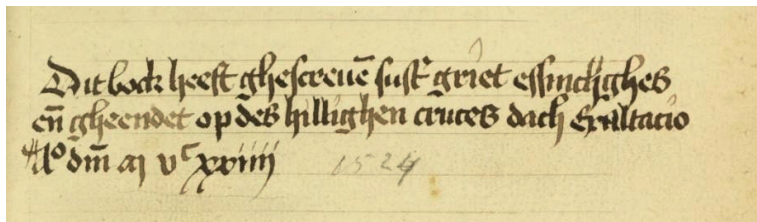 Dit bock heeft ghescreuē sust' griet essinchghes
eñ gheendet op des hillighen cruces dach Exaltacio
Aº dm̄ m vᶜ xxiiii 1524